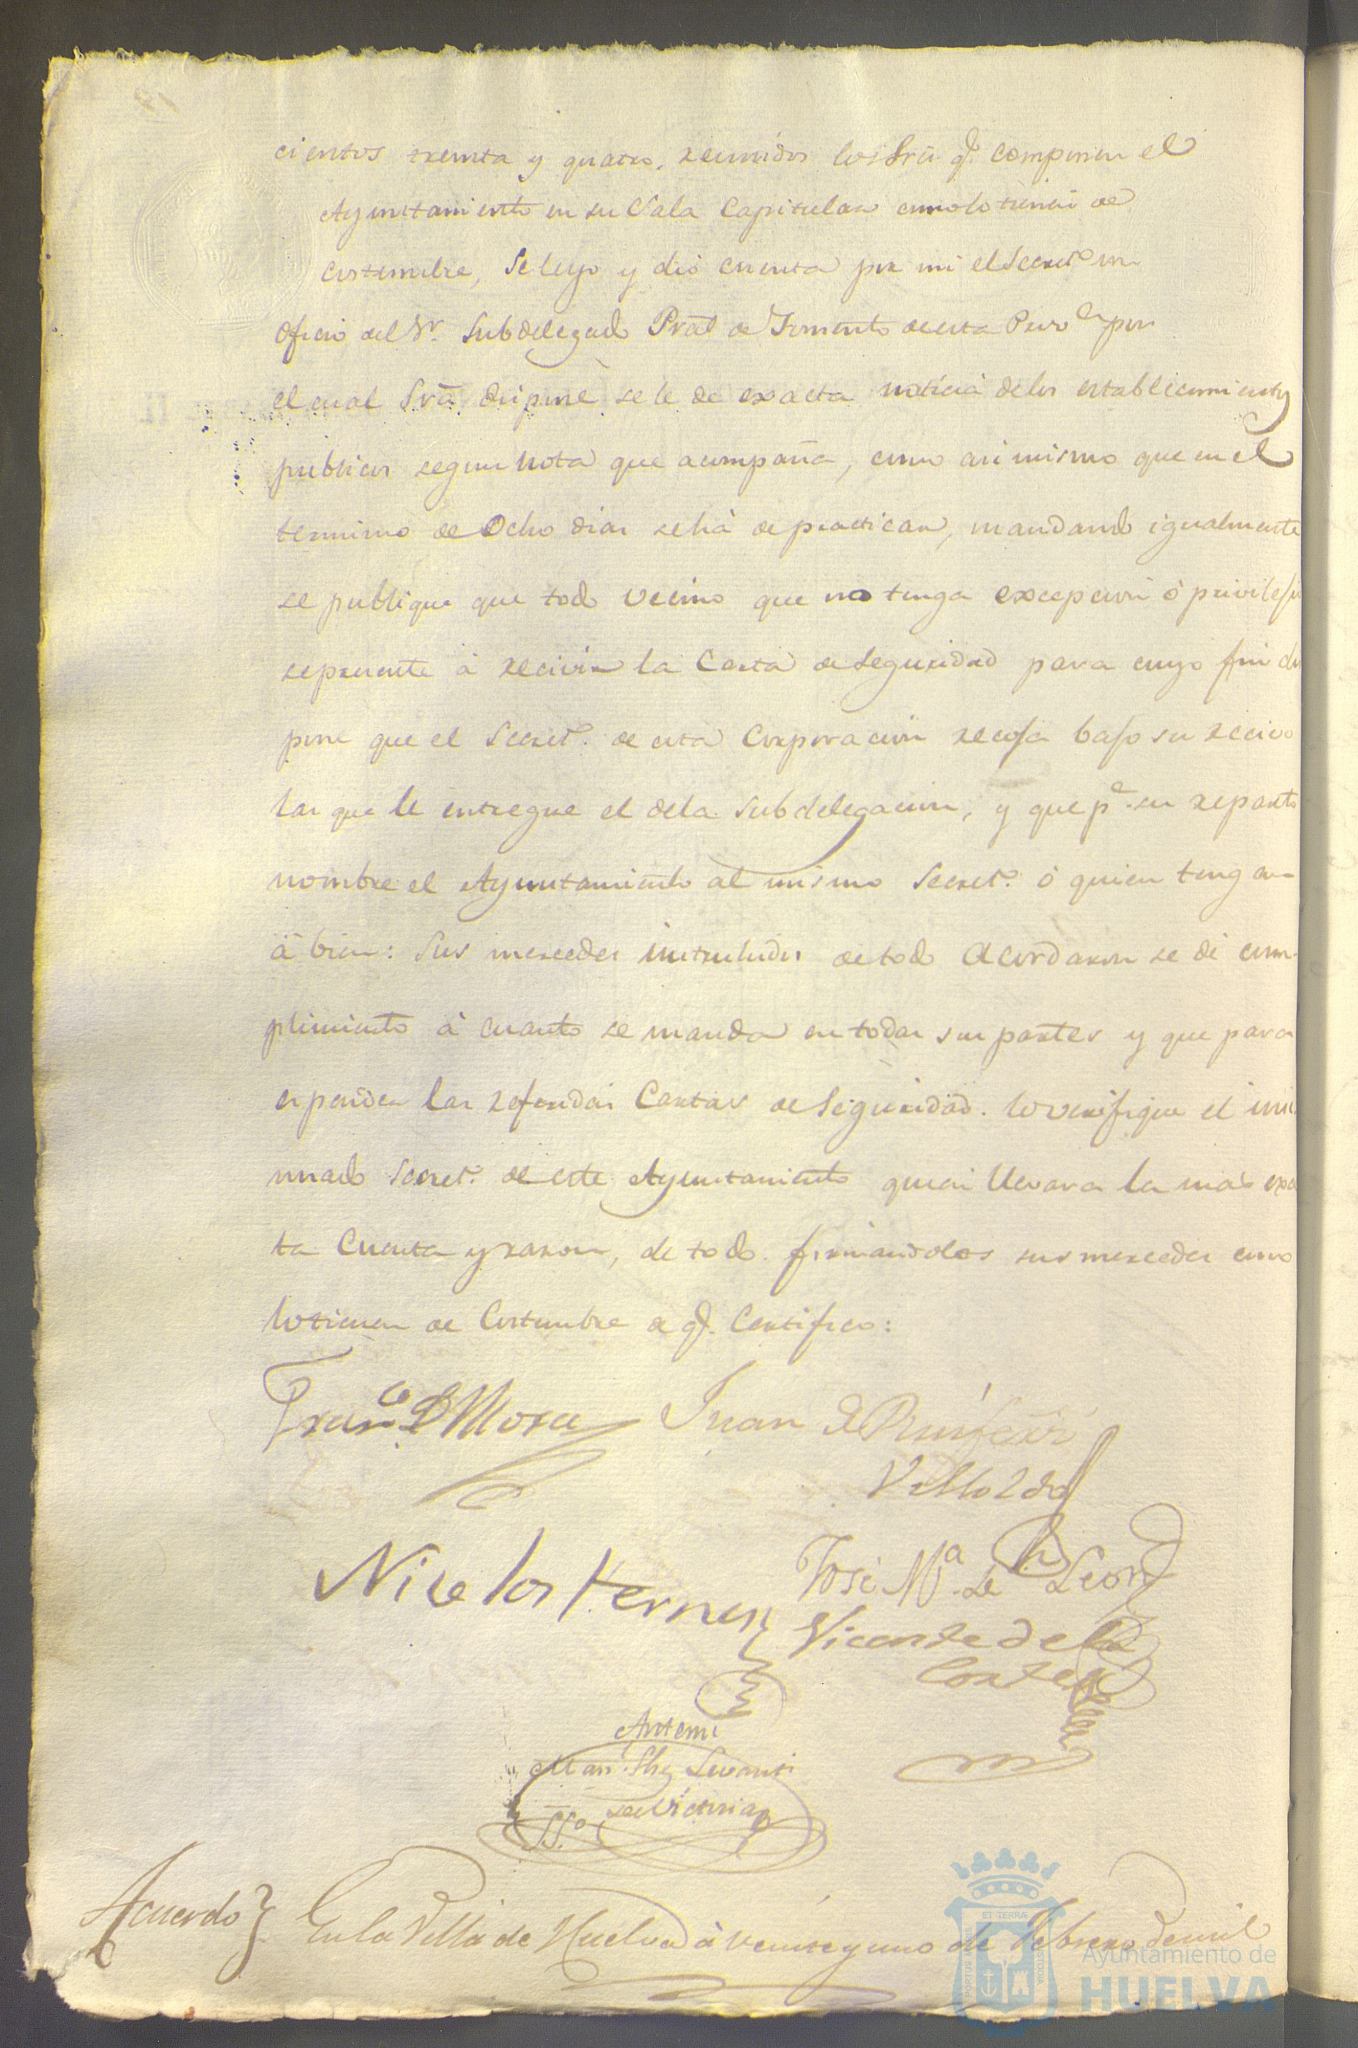 cientos treinta y quatro, reunidos los Srs. q. componen el
Ayuntamiento en su Sala Capitular como lo tienen de
costumbre, se leyo y dió cuenta por mi el Secret.º un
Oficio del Sr. Subdelegado Pral de Fomento de esta Prov.ª por
el cual Sria dispone se le dé exacta noticia de los establecimientos
publicos segun nota que acompaña, como asi mismo que en el
termino de Ocho dias se há de practicar, mandando igualmente
se publique que todo vecino que no tenga excepcion ó privilejio
se presente á recivir la Carta de Seguridad para cuyo fin dis
pone que el Secret.º de esta Corporacion recoja bajo su recivo
las que le entregue el de la Subdelegacion, y que p.ª su reparto
nombre el Ayuntamiento al mismo Secret.º ó quien tenga
á bien: Sus mercedes instruhidos de todo Acordaron se dé cum-
plimiento á cuanto se manda en todas sus partes y que para
espender las referidas Cartas de Seguridad. lo verifique el
Secret.º de este Ayuntamiento quien llevara la mas exac
ta Cuenta y razon, de todo. firmandolos sus mercedes como
lo tienen de Costumbre de q. Certifico:
Fran.co de Mora Juan de
Velloldo
Nicolas Hernz José M.ª de Leon
Vicente de la
Corte
Antemi
Man.l Shez Levanti
de Victoria
SS.º
Acuerdo En la Villa de Huelva á veinte y uno de Febrero de mil
ET TERRÆ
PORTUS MARIS
CUSTODIA
Ayuntamiento de
HUELVA